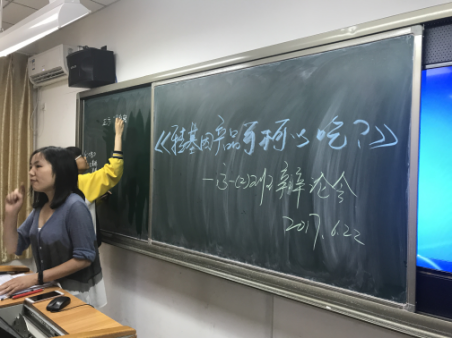 《转基因产品可不可以吃?》
—高一(2)班辩论会
2017.6.22